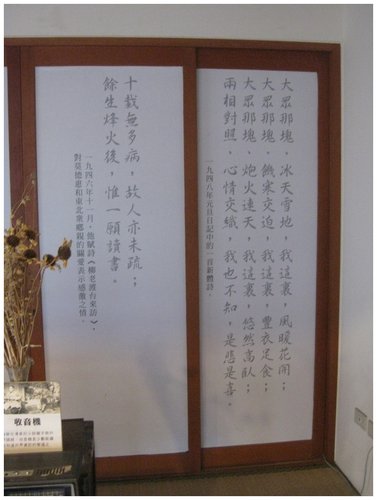 大眾那塊，冰天雪地，我這裏，風暖花開；
大眾那塊，饑寒交迫，我這裏，豐衣足食；
大眾那塊，炮火連天，我這裏，悠然高臥；
兩相對照，心情交織，我也不知，是悲是喜。
一九四八年元旦日記中的一首新體詩。
十載無多病，故人亦未疏；
餘生烽火後，惟一願讀書。
一九四六年十一月，他賦詩《柳老渡台來訪》，
對莫德惠和東北眾鄉親的關愛表示感激之情。
收音機